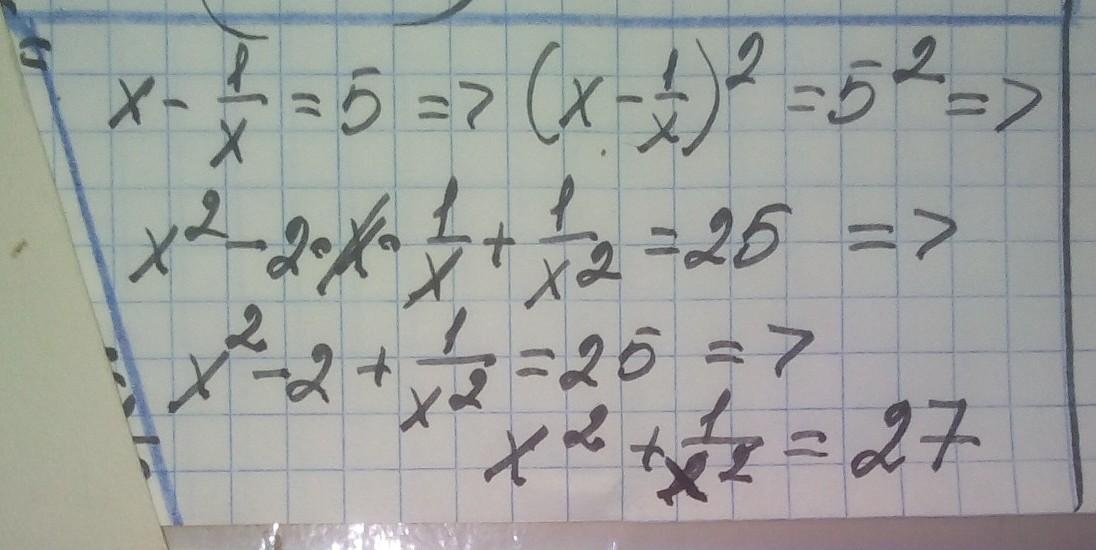 x - 1/x = 5 => (x - 1/x)² = 5² =>
x² - 2·x·1/x + 1/x² = 25 =>
x² - 2 + 1/x² = 25 =>
x² + 1/x² = 27